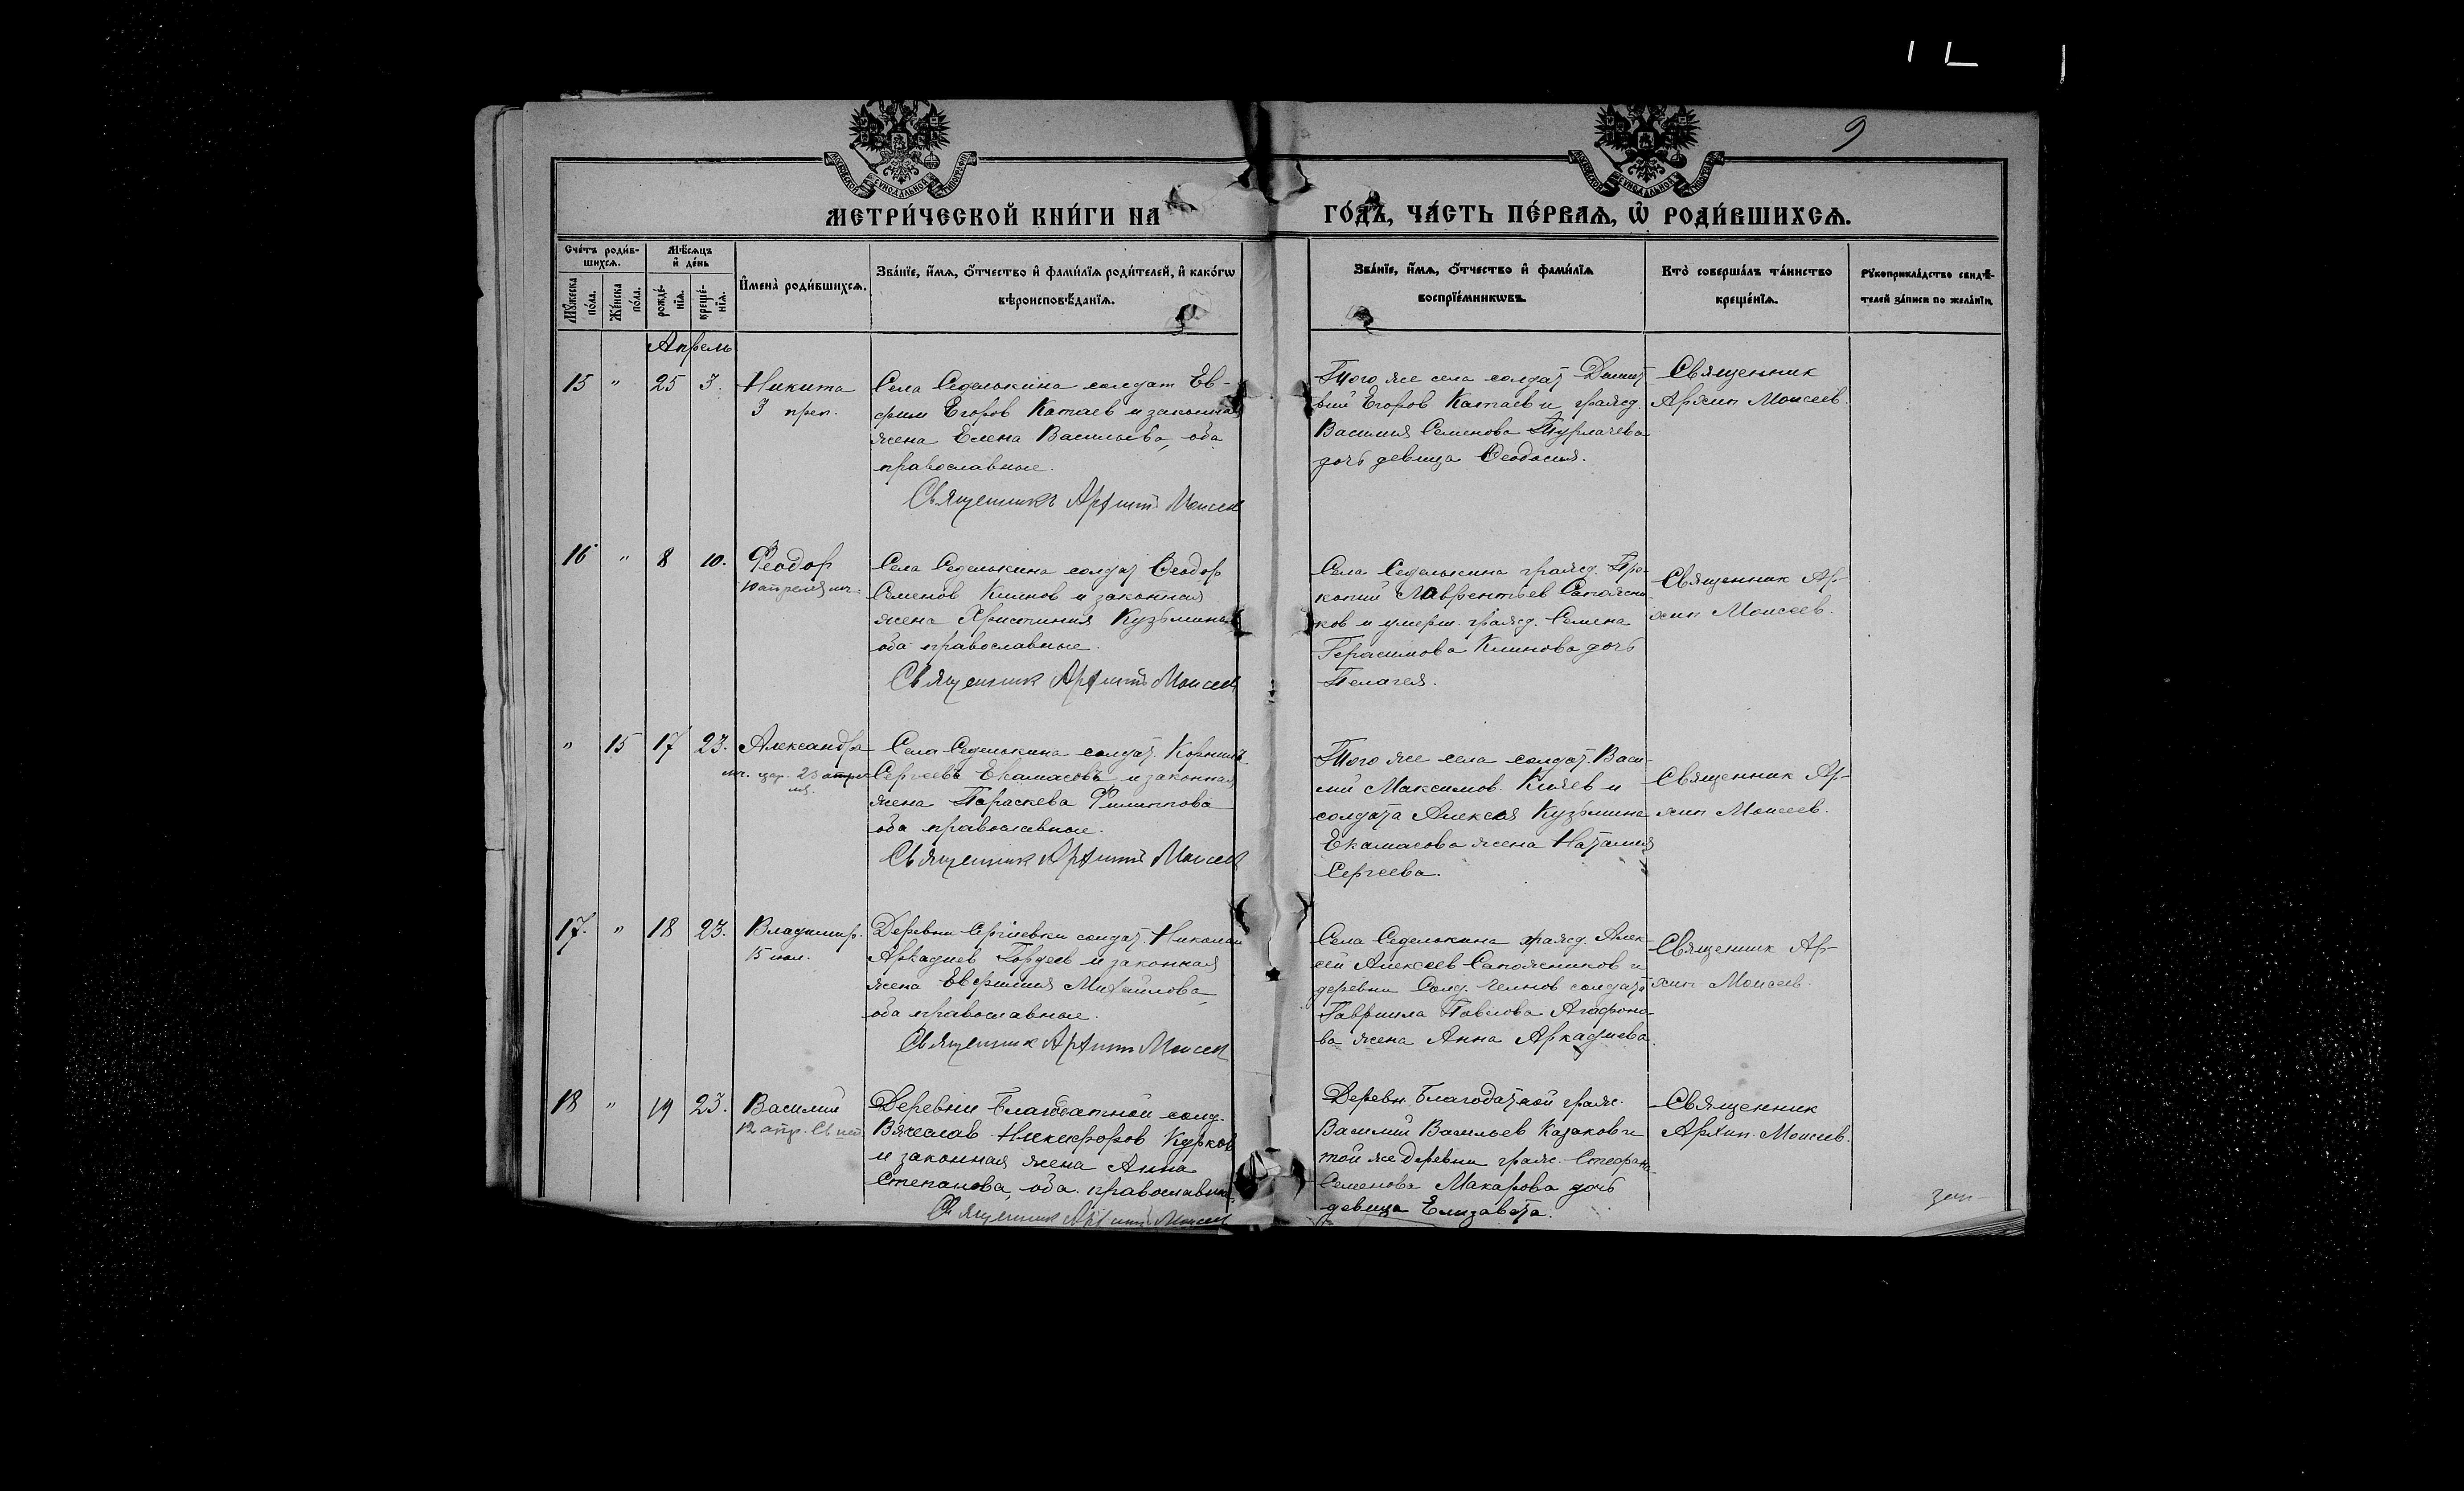 9
МОСКОВСКОЙ СѴНОДАЛЬНОЙ ТИПОГРАФІИ
МОСКОВСКОЙ СѴНОДАЛЬНОЙ ТИПОГРАФІИ
МЕТРИ́ЧЕСКОЙ КНИ́ГИ НА ГО́ДЪ, ЧА́СТЬ ПЕ́РВАѦ, Ѡ҆ РОДИ́ВШИХСѦ.
Сче́тъ роди́в-
шихсѧ.
Мꙋ́жеска по́ла.
Же́нска по́ла.
Мѣ́сѧцъ
и҆ де́нь
рожде́-
нїѧ.
креще́-
нїѧ.
И҆мена̀ роди́вшихсѧ.
Зва́нїе, и҆́мѧ, ѻ҆́тчество и҆ фами́лїѧ роди́телей, и҆ како́гѡ
вѣроисповѣ́данїѧ.
Зва́нїе, и҆́мѧ, ѻ҆́тчество и҆ фами́лїѧ
воспрїе́мникѡвъ.
Кто̀ соверша́лъ та́инство
креще́нїѧ.
Рꙋкоприкла́дство свидѣ́-
телей за́писи по жела́нїю.
Апрель
15 " 25 3.
Никита
3 преп.
Села Седелькина солдат Ев-
фим Егоров Катаев и законная
жена Елена Васильева, оба
православные.
Священникъ Архипъ Моисеев
Того же села солдат
Егоров Катаев и гражд.
Василия Семенова Турлачева
дочь девица Феодосия.
Священник
Архип Моисеев.
16 " 8 10.
Феодор
10 апреля мч.
Села Седелькина солдат Феодор
Семенов Климов и законная
жена Христиния Кузьмина
оба православные.
Священник Архипъ Моисеев
Села Седелькина гражд. Про-
копий Лаврентьев Сапожни-
ков и умерш. гражд. Семена
Герасимова Климова дочь
Пелагея.
Священник Ар-
хип Моисеев.
" 15 17 23.
Александра
мч. цар. 23 апре
ля.
Села Седелькина солдат. Корнилъ
Сергеевъ Екамасовъ и законная
жена Параскева Филиппова
оба православные.
Священник Архипъ Моисеев
Того же села солдат. Васи-
лий Максимов и
солдата Алексея Кузьмина
Екамасова жена Наталия
Сергеева.
Священник Ар-
хип Моисеев.
17. " 18 23.
Владимир.
15 июл.
Деревни Сергиевки солдат. Николай
Аркадиев Гордеев и законная
жена Евфимия Михайлова,
оба православные.
Священник Архипъ Моисеев
Села Седелькина гражд. Алек-
сей Алексеев Сапожников и
деревни солдата
Гавриила Павлова Агафоно-
ва жена Анна Аркадиева.
Священник Ар-
хип Моисеев.
18 " 19 23.
Василий
12 апр. Св исп.
Деревни Благодатной солд.
Вячеслав Никифоров Курков
и законная жена Анна
Степанова, оба православные.
Священник Архипъ Моисеев
Деревн. Благодатной граж.
Василий Васильев Казаков и
той же деревни граж. Стефана
Семенова Макарова дочь
девица Елизавета.
Священник
Архип Моисеев.